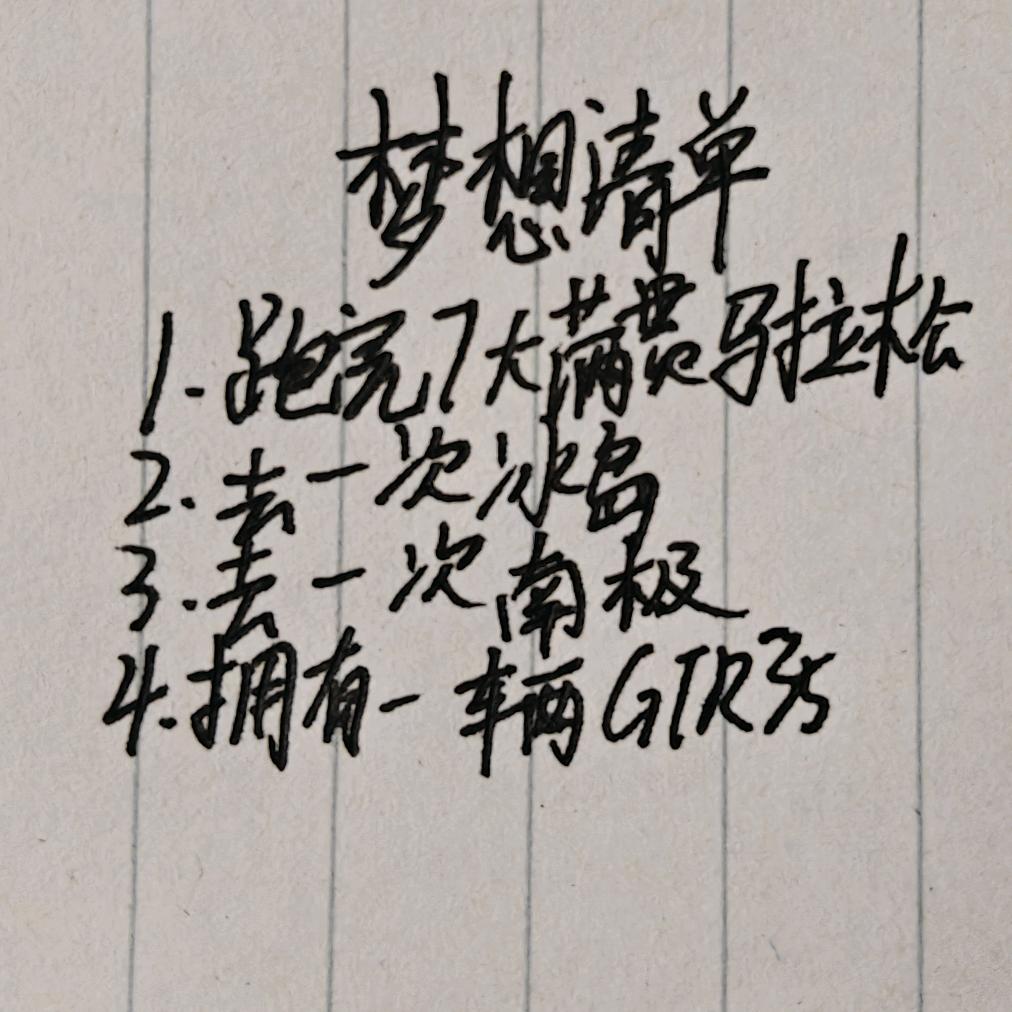 梦想清单
1.跑完7大满贯马拉松
2.去一次冰岛
3.去一次南极
4.拥有一辆GTR35